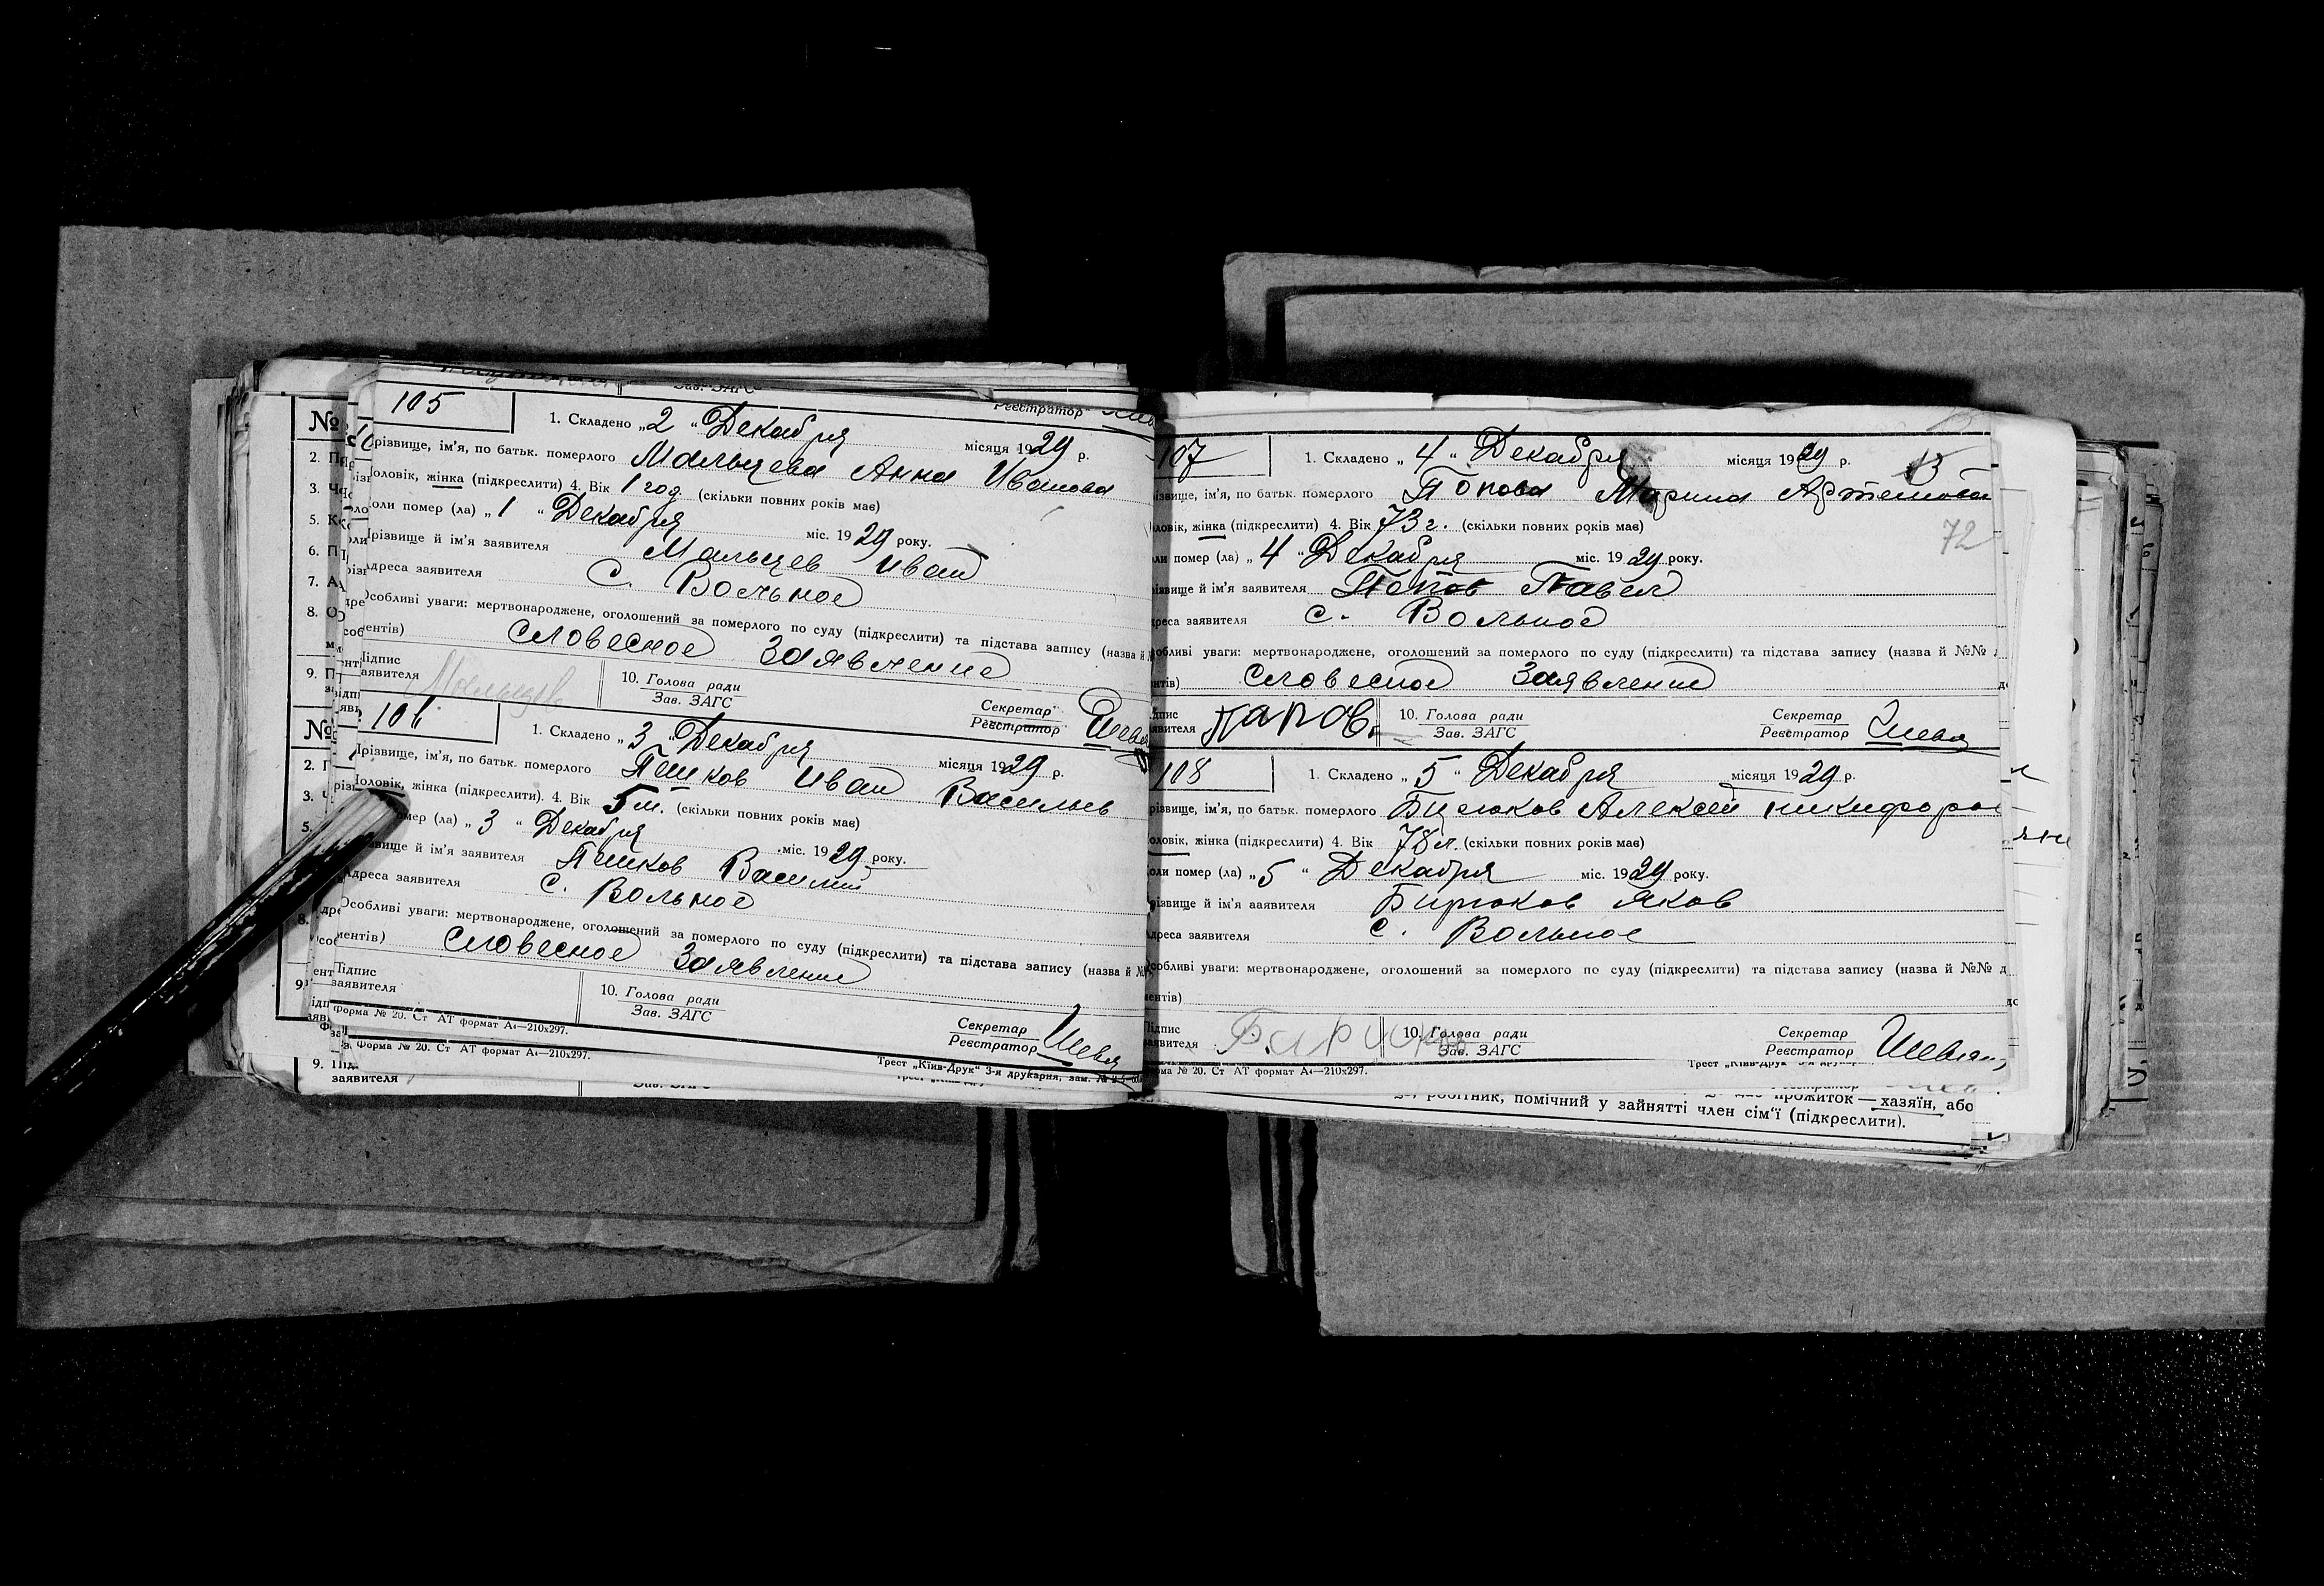 Зав. ЗАГС
Реєстратор
105
1. Складено „2“ Декабря місяця 1929 р.
різвище, ім'я, по батьк. померлого Мальцева Анна Иванова
оловік, жінка (підкреслити) 4. Вік 1 год. (скільки повних років має)
оли помер (ла) „1“ Декабря міс. 1929 року.
різвище й ім'я заявителя Мальцев Иван
дреса заявителя с. Вольное
Особливі уваги: мертвонароджене, оголошений за померлого по суду (підкреслити) та підстава запису (назва й
ентів) словесное Заявление
Підпис заявителя Мальцев 10. Голова ради Зав. ЗАГС Секретар Реєстратор Шевл
106
1. Складено „3“ Декабря місяця 1929 р.
Прізвище, ім'я, по батьк. померлого Пешков Иван Васильев
оловік, жінка (підкреслити). 4. Вік 5 м. (скільки повних років має)
омер (ла) „3“ Декабря міс. 1929 року.
звище й ім'я заявителя Пешков Василий
Адреса заявителя с. Вольное
Особливі уваги: мертвонароджене, оголошений за померлого по суду (підкреслити) та підстава запису (назва й №
ментів) словесное Заявление
Підпис заявителя 10. Голова ради Зав. ЗАГС Секретар Реєстратор Шевл
Форма № 20. Ст АТ формат А4—210х297.
Форма № 20. Ст АТ формат А4—210х297.
Трест „Київ-Друк“ 3-я друкарня, зам. №
9. Підп
заявителя
107
1. Складено „4“ Декабря місяця 1929 р.
13
ізвище, ім'я, по батьк. померлого Попова Марина Артемова
72
ловік, жінка (підкреслити) 4. Вік 73 г. (скільки повних років має)
ли помер (ла) „4“ Декабря міс. 1929 року.
ізвище й ім'я заявителя Попов Павел
дреса заявителя с. Вольное
обливі уваги: мертвонароджене, оголошений за померлого по суду (підкреслити) та підстава запису (назва й №№ д
нтів) словесное Заявление
дпис явителя папов. 10. Голова ради Зав. ЗАГС Секретар Реєстратор Шевл
108
1. Складено „5“ Декабря місяця 1929 р.
різвище, ім'я, по батьк. померлого Бирюков Алексей никифоров
оловік, жінка (підкреслити) 4. Вік 78 л. (скільки повних років має)
оли помер (ла) „5“ Декабря міс. 1929 року.
різвище й ім'я ааявителя Бирюков Яков
дреса заявителя с. Вольное
Особливі уваги: мертвонароджене, оголошений за померлого по суду (підкреслити) та підстава запису (назва й №№ д
ентів)
Підпис явителя 10. Голова ради Зав. ЗАГС Секретар Реєстратор
рма № 20. Ст АТ формат А4—210х297.
Трест „Київ-Друк“ 3-я друкар
робітник, помічний у зайнятті член сім'ї (підкреслити).
прожиток — хазяїн, або